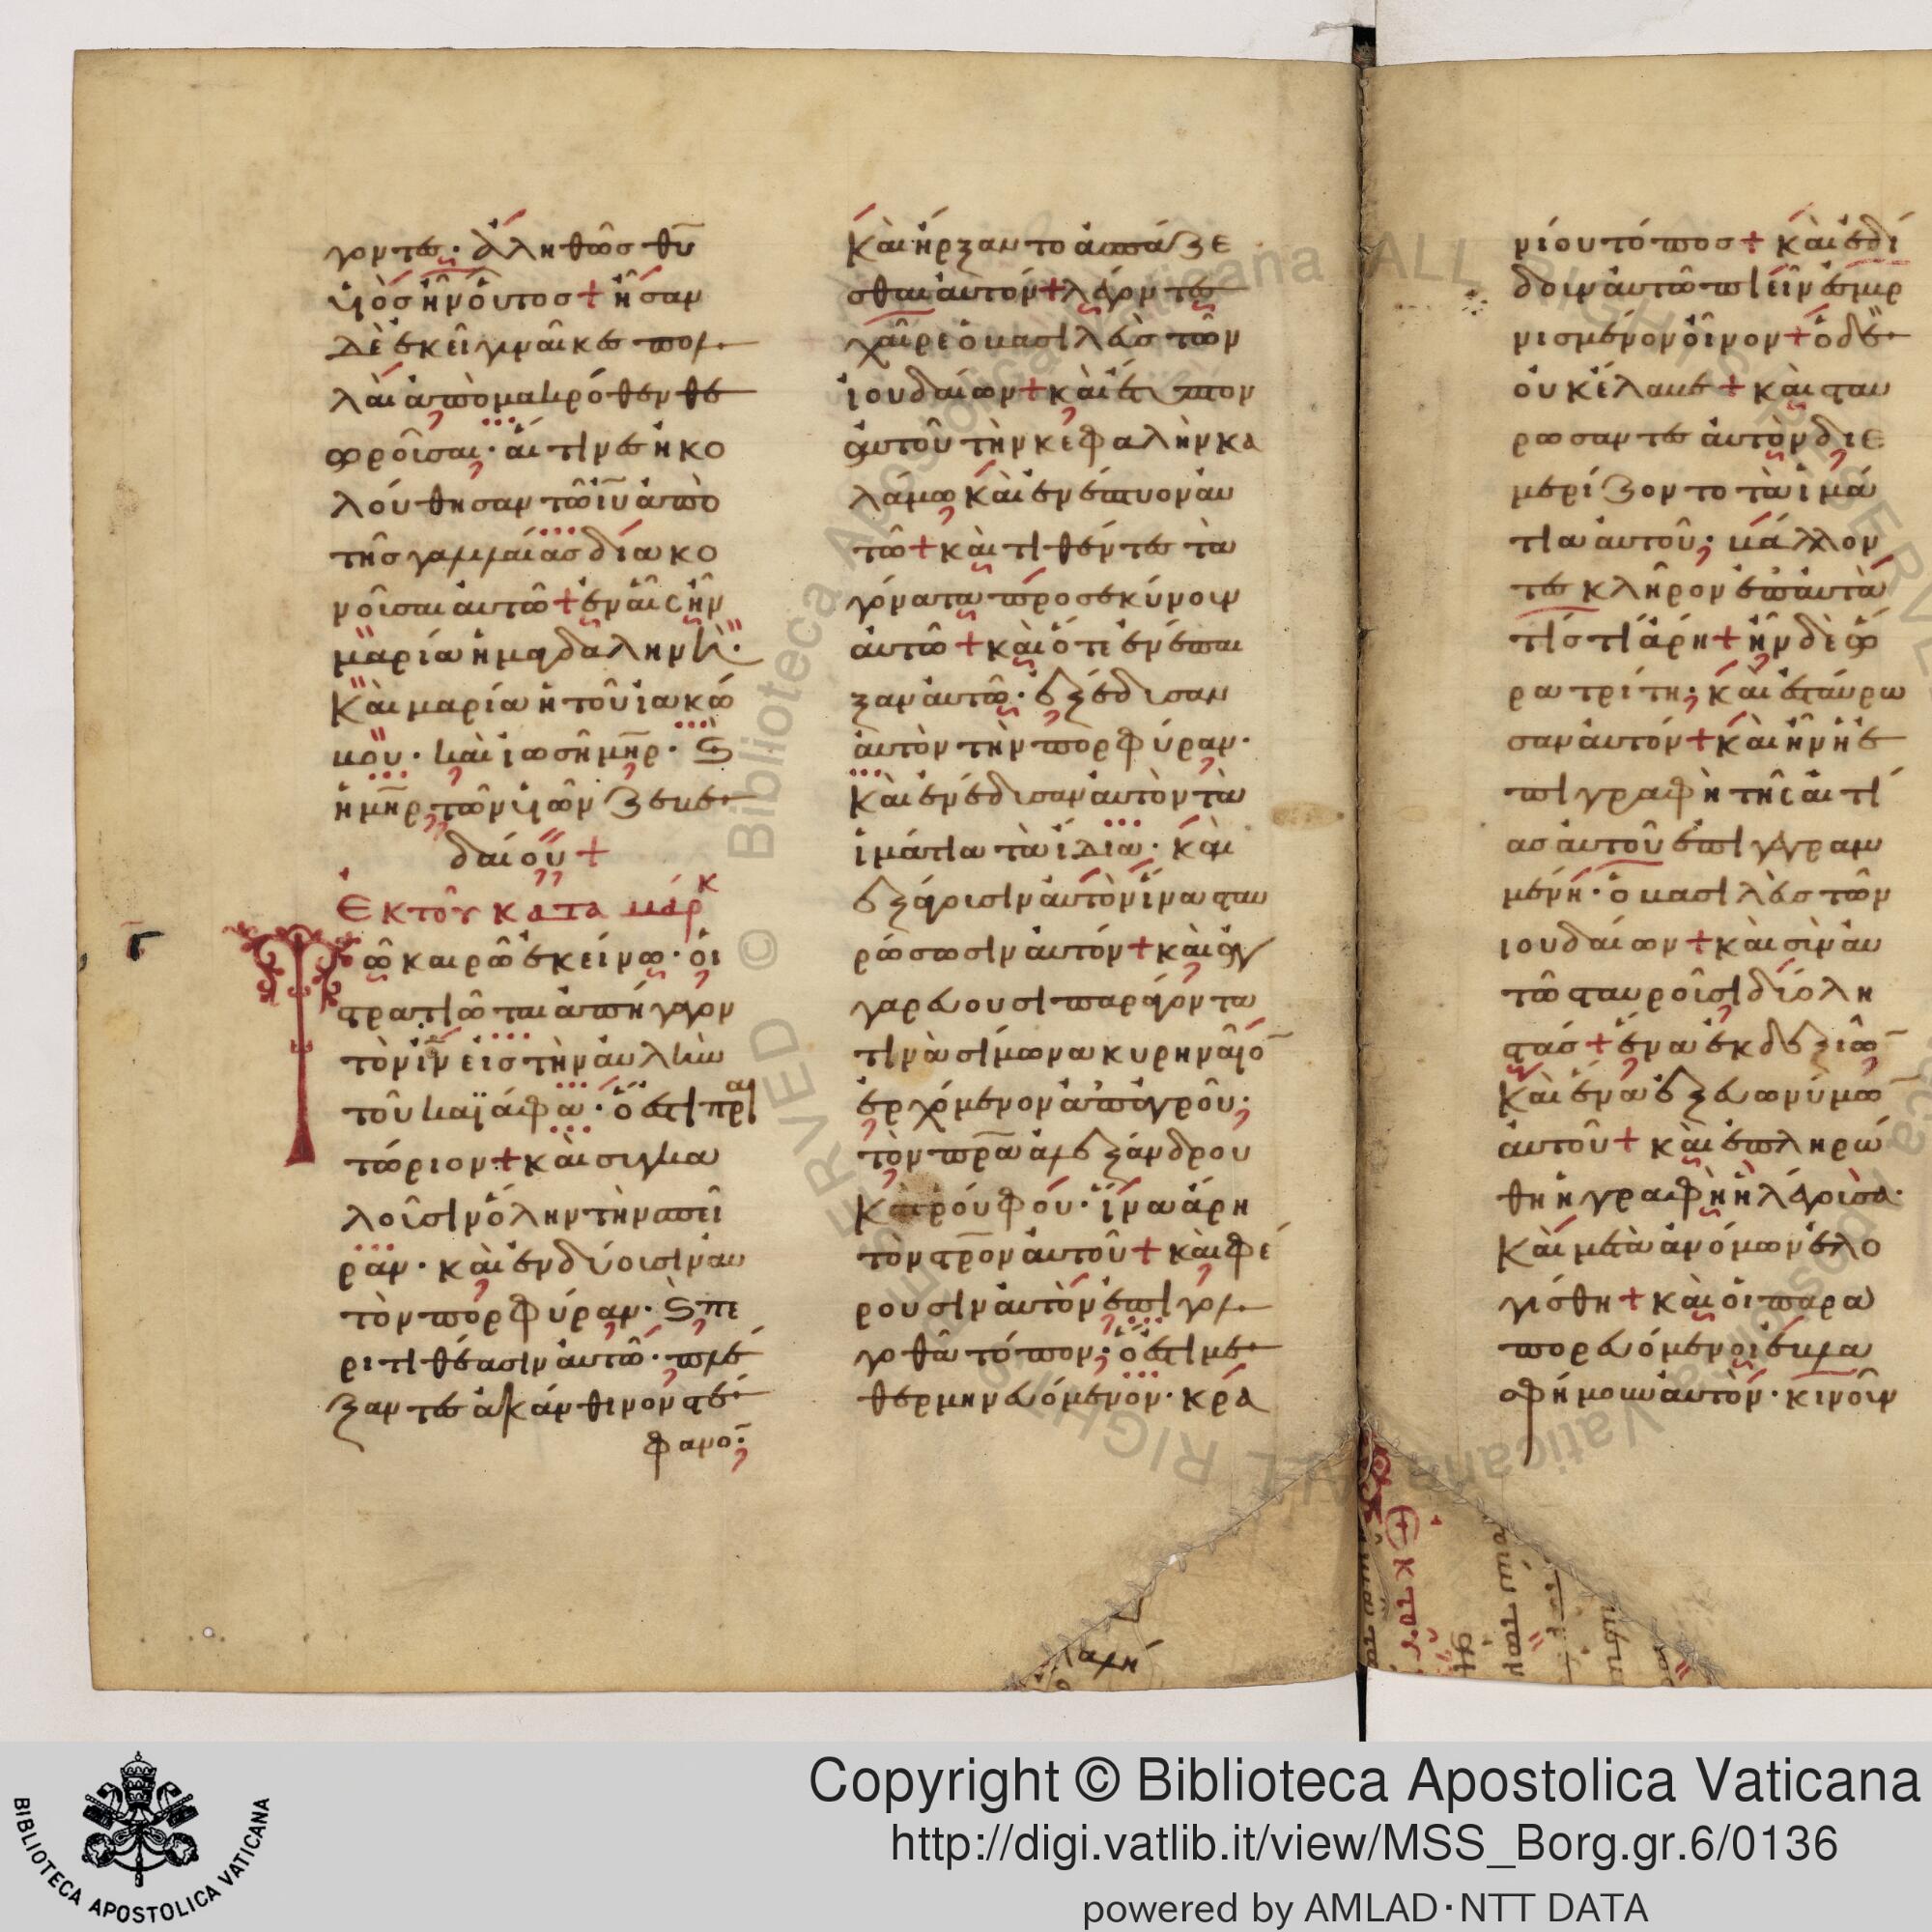 γοντες· ἀληθῶς θῡ
υἱὸς ἦν οὗτος + ἦσαν
δὲ ἐκεῖ γυναῖκες πολ
λαὶ ἀπὸ μακρόθεν θε
ωροῦσαι· αἵτινες ἠκο
λούθησαν τῶ ιῡ ἀπὸ
τῆς γαλιλαίας διακο
νοῦσαι αὐτῶ + ἐν αἷς ἦν
μαρία ἡ μαγδαληνή·
Καὶ μαρία ἡ τοῦ ἰακώ
βου· καὶ ἰωσῆ μη̄ρ· Ϛ
ἡ μη̄ρ τῶν υἱῶν Ζεβε
δαίου +
Ἐκ τοῦ κατα μάρκ
Τῶ καιρῶ ἐκείνω· οἱ
στρατιῶται ἀπήγαγον
τὸν ιν̄ εἰς τὴν αὐλὴν
τοῦ καϊάφα· ὅ ἐστι πραι
τώριον + καὶ συγκα
λοῦσιν ὅλην τὴν σπεῖ
ραν· καὶ ἐνδύουσιν αὐ
τὸν πορφύραν· Ϛ πε
ριτιθέασιν αὐτῶ· πλέ
ξαντες ἀκάνθινον στέ
φανον·
Καὶ ἤρξαντο ἀσπάζε
σθαι αὐτόν + λέγοντες
χαῖρε ὁ βασιλεὺς τῶν
ἰουδαίων + καὶ ἔτυπτον
αὐτοῦ τὴν κεφαλὴν κα
λάμω Καὶ ἐνέπτυον αὐ
τῶ + καὶ τιθέντες τὰ
γόνατα προσεκύνουν
αὐτῶ + καὶ ὅτε ἐνέπαι
ξαν αὐτῶ· ἐξέδυσαν
αὐτὸν τὴν πορφύραν·
Καὶ ἐνέδυσαν αὐτὸν τὰ
ἱμάτια τὰ ἴδια· καὶ
ἐξάγουσιν αὐτὸν ἵνα σταυ
ρώσωσιν αὐτόν + καὶ ἀγ
γαρεύουσι παράγοντα
τινὰ σίμωνα κυρηναῖο̄
ἐρχόμενον ἀπ' ἀγροῦ·
τὸν πρ̄α ἀλεξάνδρου
Καὶ ῥούφου· ἵνα ἄρη
τὸν στρ̄ον αὐτοῦ + καὶ φέ
ρουσιν αὐτὸν ἐπὶ γολ
γοθᾶ τόπον· ὅ ἐστι με
θερμηνευόμενον· κρα
νίου τόπος + Καὶ ἐδί
δουν αὐτῶ πιεῖν ἐσμυρ
νισμένον οἶνον + ὁ δὲ
οὐκ ἔλαβε + καὶ σταυ
ρώσαντες αὐτὸν διε
μερίζοντο τὰ ἱμά
τια αὐτοῦ· βάλλον
τες κλῆρον ἐπ' αὐτὰ
τίς τί ἄρη + ἦν δὲ ὥ
ρα τρίτη· καὶ ἐσταύρω
σαν αὐτόν + Καὶ ἦν ἡ ἐ
πιγραφὴ τῆς αἰτί
ας αὐτοῦ ἐπιγεγραμ
μένη· ὁ βασιλεὺς τῶν
ἰουδαίων + καὶ σὺν αὐ
τῶ σταυροῦσι δύο λη
στάς + ἕνα ἐκ δεξιῶ̄
Καὶ ἕνα ἐξ εὐωνύμω̄
αὐτοῦ + καὶ ἐπληρώ
θη ἡ γραφὴ ἡ λέγουσα·
Καὶ μετὰ ἀνόμων ἐλο
γίσθη + καὶ οἱ παρα
πορευόμενοι ἐβλα
σφήμουν αὐτόν· κινοῦν
Copyright © Biblioteca Apostolica Vaticana
http://digi.vatlib.it/view/MSS_Borg.gr.6/0136
powered by AMLAD·NTT DATA
BIBLIOTECA APOSTOLICA VATICANA